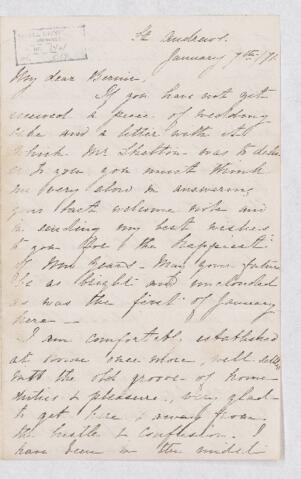 St. Andrews.
January 7th /71.
My dear Bernie,
If you have not yet
received a piece of wedding
cake and a letter with it
which Mr Skelton was to deliver
to you you must think
me very slow in answering
your last welcome note and
in sending my best wishes
to you for the happiest
of New Years - May your future
be as bright and unclouded
as was the first of January
here -
I am comfortably established
at home once more, well settled
into the old groove of home
duties & pleasure, very glad
to get here & away from
the bustle & confusion. I
have been in the midst